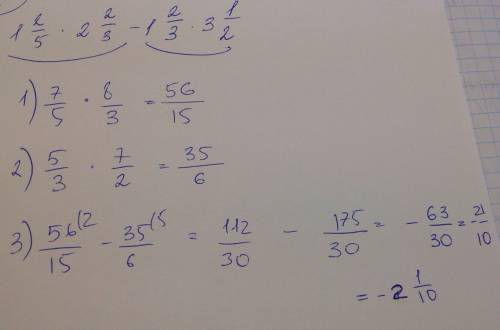 1 2/5 · 2 2/3 - 1 2/3 · 3 1/2
1) 7/5 · 8/3 = 56/15
2) 5/3 · 7/2 = 35/6
3) 56(2/15 - 35(5/6 = 112/30 - 175/30 = - 63/30 = 21/10
= -2 1/10